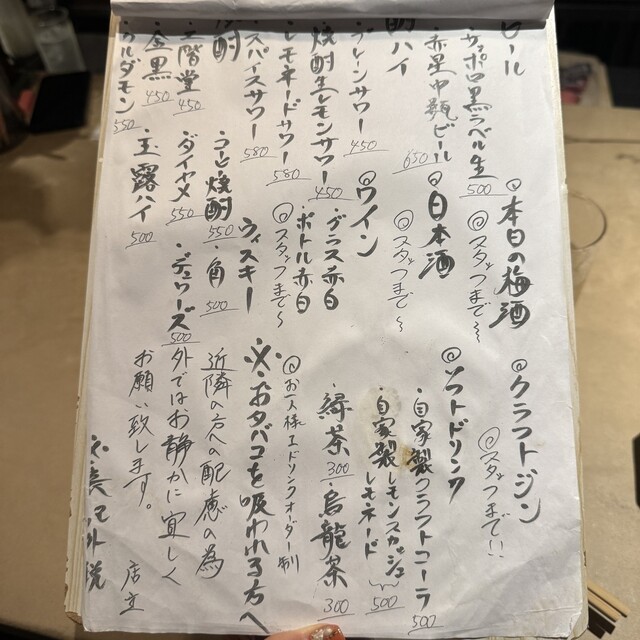 ビール
・サッポロ黒ラベル生 500
・赤星中瓶ビール 650
酎ハイ
・プレーンサワー 450
・焼酎生レモンサワー 450
・レモネードサワー 580
・スパイスサワー 580
焼酎
・二階堂 450
・金黒 450
・ウルダモン 550
◎本日の梅酒
◎スタッフまで〜
◎日本酒
◎スタッフまで〜
◎ワイン
・グラス赤白
・ボトル赤白
◎スタッフまで〜
ウィスキー
・角 500
・デュワーズ 500
・コーヒー焼酎 550
・ダイヤメ 550
・玉露ハイ 500
◎クラフトジン
◎スタッフまで!!
◎ソフトドリンク
・自家製クラフトコーラ 500
・自家製レモンスカッシュ
レモネード 500
・緑茶 300
・烏龍茶 300
◎お一人様1ドリンクオーダー制
※おタバコを吸われる方へ
近隣の方への配慮の為
外ではお静かに宜しく
お願い致します。
店主